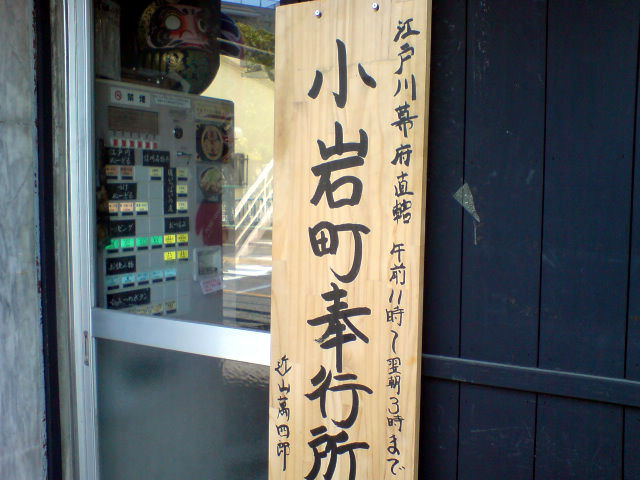 江戸川幕府直轄 午前11時～翌朝3時まで
小岩町奉行所
近山萬四郎
禁煙